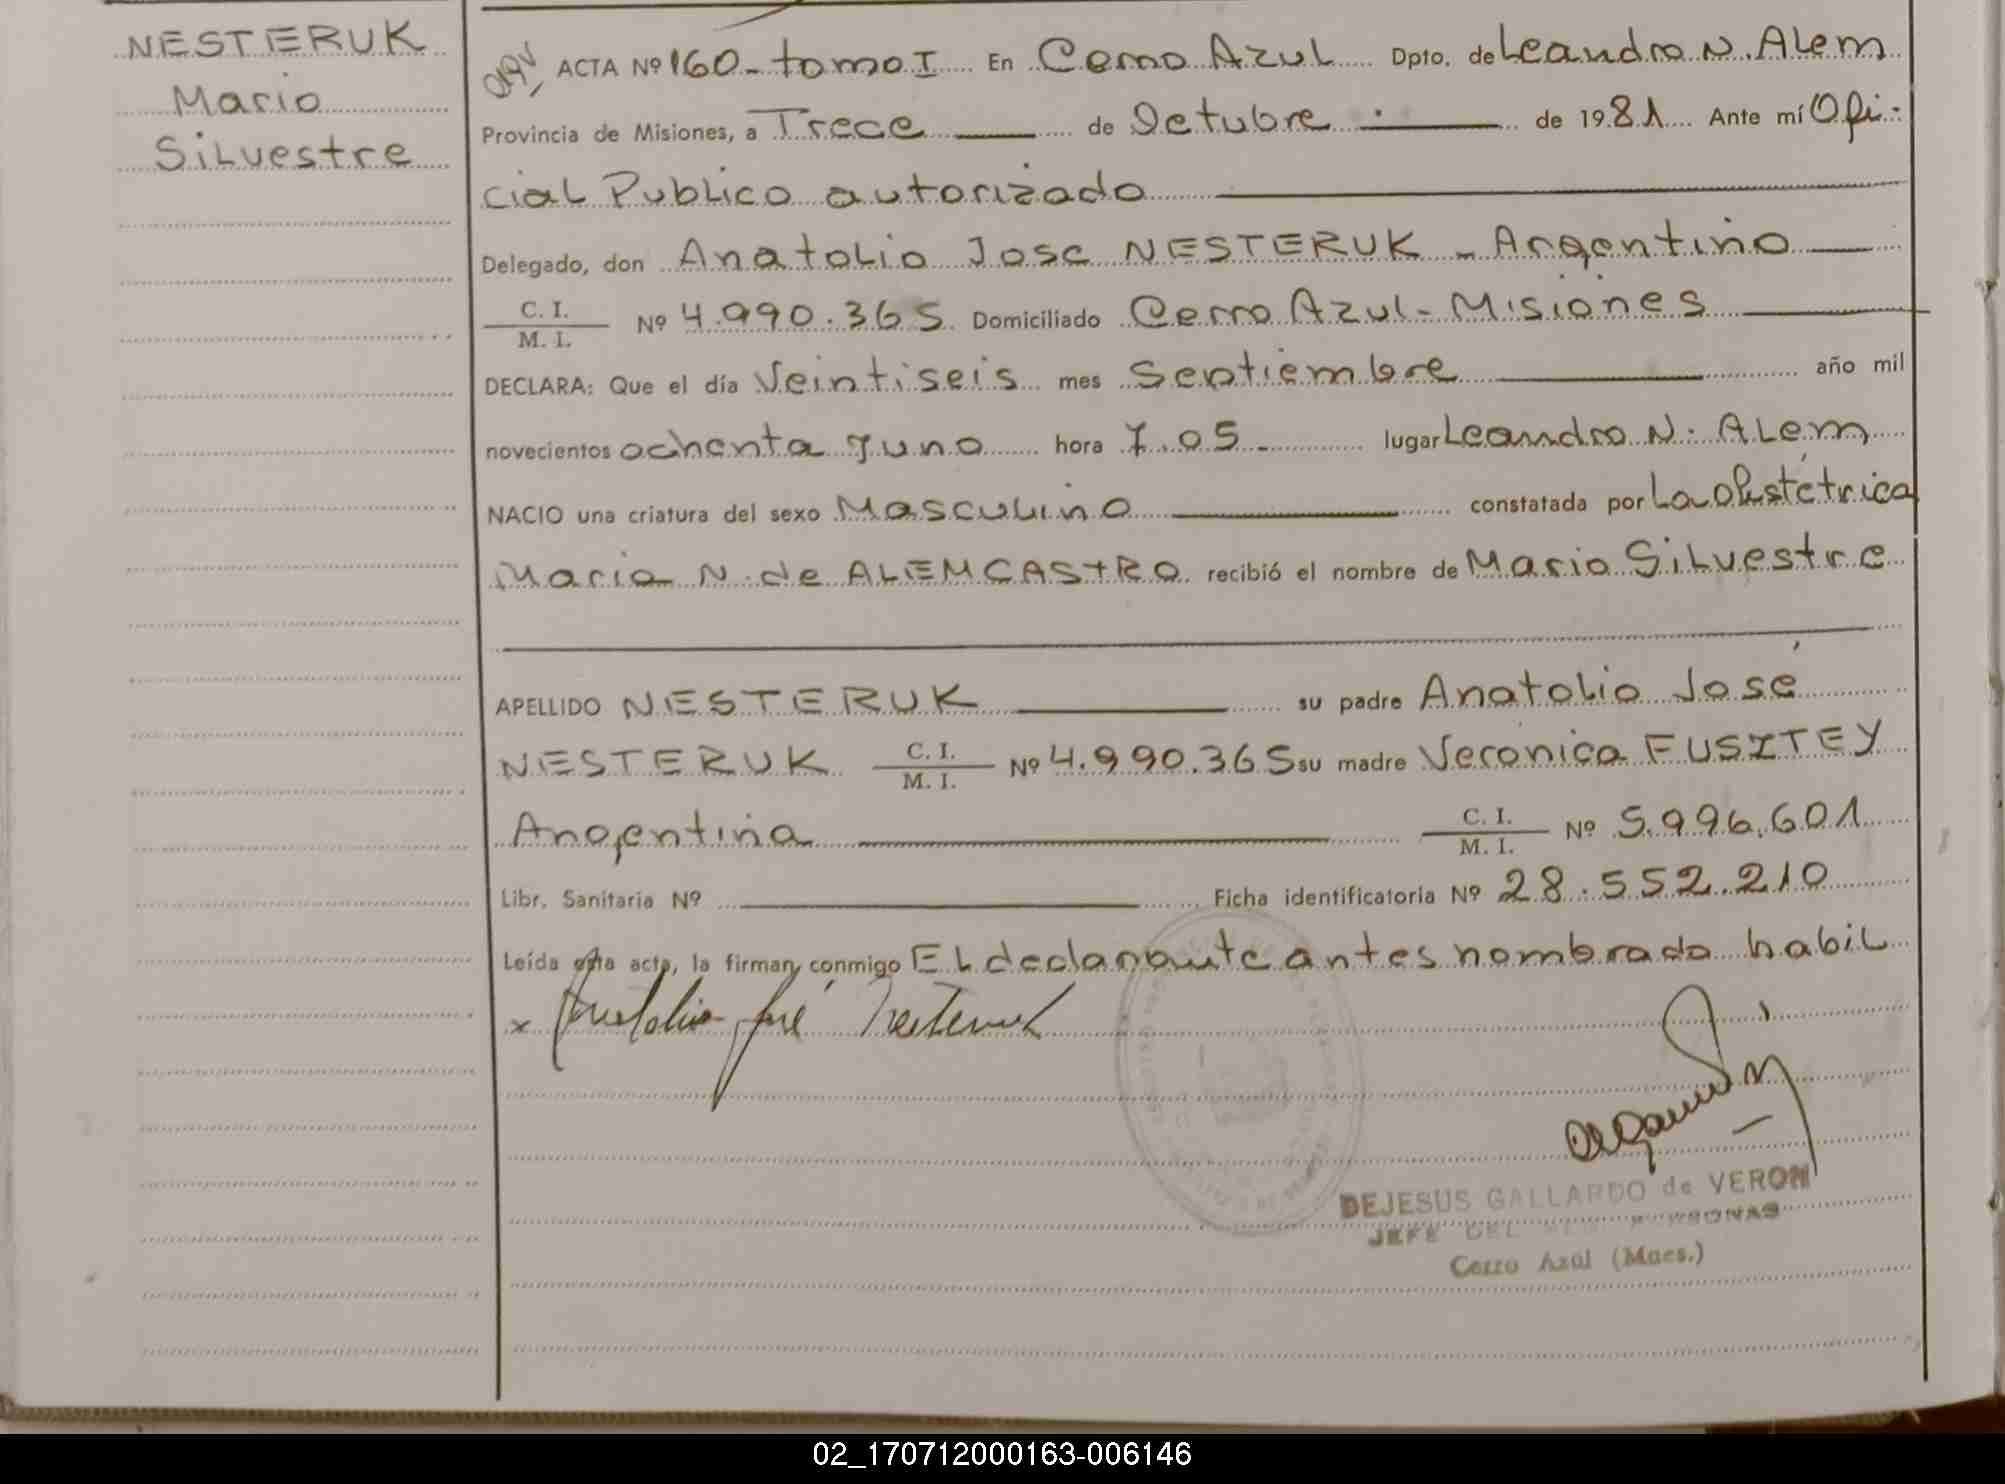 NESTERUK
Mario
Silvestre
ACTA Nº 160 - tomo I En Cerro Azul Dpto. de Leandro N. Alem
Provincia de Misiones, a Trece de Octubre de 1981 Ante mí Ofi-
cial Publico autorizado
Delegado, don Anatolio Jose NESTERUK - Argentino
C. I.
M. I. Nº 4.990.365 Domiciliado Cerro Azul - Misiones
DECLARA: Que el día Veintiseis mes Septiembre año mil
novecientos ochenta y uno hora 7.05 - lugar Leandro N. Alem
NACIO una criatura del sexo Masculino constatada por La Obstétrica
Maria N. de ALEMCASTRO recibió el nombre de Mario Silvestre
APELLIDO NESTERUK su padre Anatolio José
NESTERUK C. I. M. I. Nº 4.990.365 su madre Veronica FUSZTEY
Argentina C. I. M. I. Nº 5.996.601
Libr. Sanitaria Nº Ficha identificatoria Nº 28.552.210
Leída esta acta, la firman conmigo El declarante antes nombrado habil
x Anatolio José Nesteruk
DEJESUS GALLARDO de VERON
JEFE DEL PERSONAS
Cerro Azul (Mnes.)
02_170712000163-006146